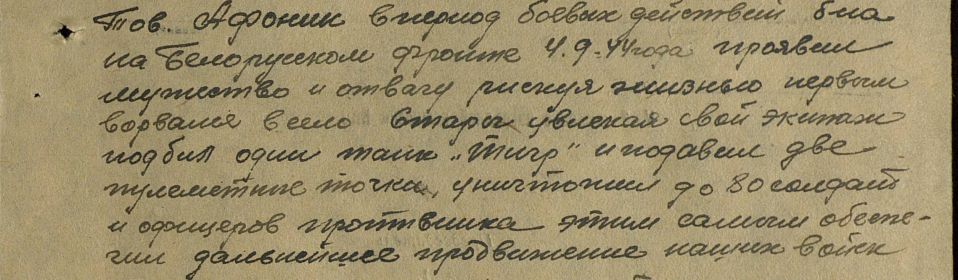 Тов. Афоник в период боевых действий б-на
на Белорусском фронте 4.9-44 года проявил
мужество и отвагу рискуя жизнью первым
ворвался в село Старо увлекая свой экипаж
подбил один танк „Тигр" и подавил две
пулеметные точки, уничтожил до 80 солдат
и офицеров противника этим самым обеспе-
чил дальнейшее продвижение наших войск